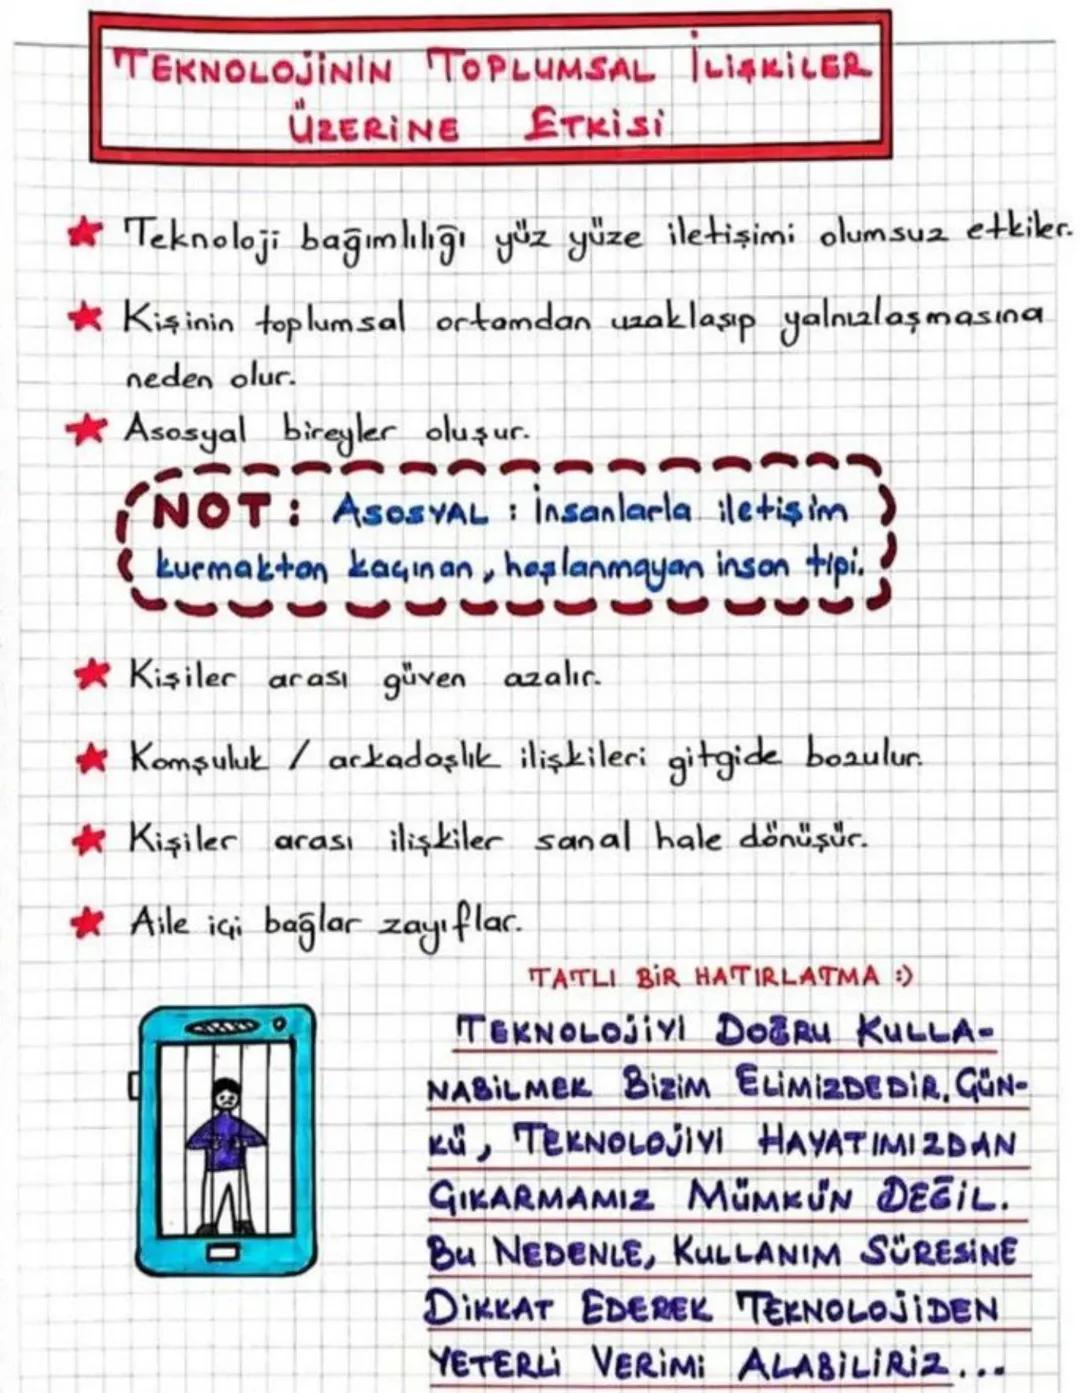 TEKNOLOJİNİN TOPLUMSAL İLİŞKİLER
ÜZERİNE ETKİSİ
Teknoloji bağımlılığı yüz yüze iletişimi olumsuz etkiler.
Kişinin toplumsal ortamdan uzaklaşıp yalnızlaşmasına
neden olur.
Asosyal bireyler oluşur.
NOT: ASOSYAL : İnsanlarla iletişim
kurmaktan kaçınan, hoşlanmayan insan tipi.
Kişiler arası güven azalır.
Komşuluk / arkadaşlık ilişkileri gitgide bozulur.
Kişiler arası ilişkiler sanal hale dönüşür.
Aile içi bağlar zayıflar.
TATLI BİR HATIRLATMA :)
TEKNOLOJİYİ DOĞRU KULLA-
NABİLMEK BİZİM ELİMİZDEDİR. ÇÜN-
KÜ, TEKNOLOJİYİ HAYATIMIZDAN
ÇIKARMAMIZ MÜMKÜN DEĞİL.
BU NEDENLE, KULLANIM SÜRESİNE
DİKKAT EDEREK TEKNOLOJİDEN
YETERLİ VERİMİ ALABİLİRİZ...